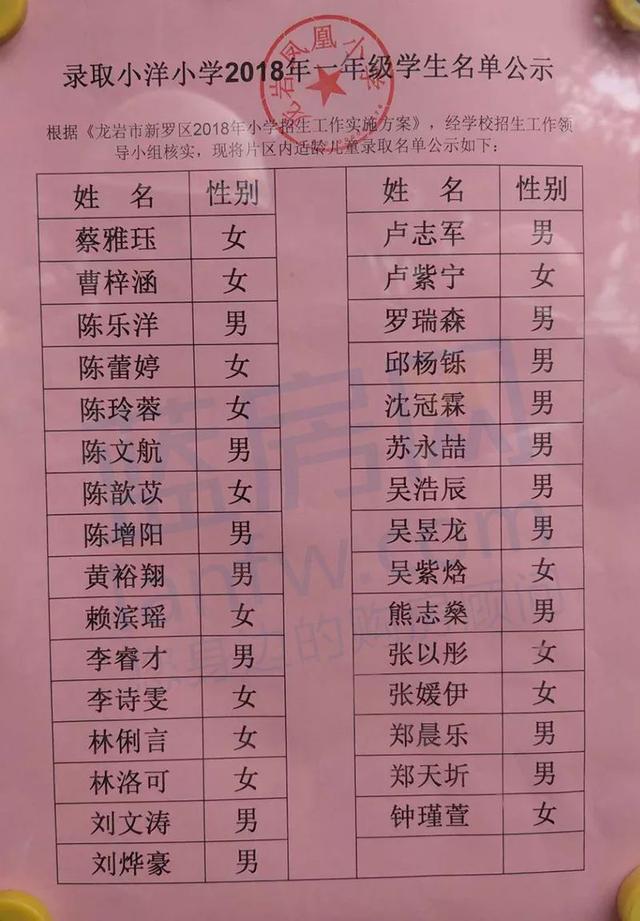 录取小洋小学2018年一年级学生名单公示
根据《龙岩市新罗区2018年小学招生工作实施方案》，经学校招生工作领
导小组核实，现将片区内适龄儿童录取名单公示如下：
姓 名 性别 姓 名 性别
蔡雅珏 女 卢志军 男
曹梓涵 女 卢紫宁 女
陈乐洋 男 罗瑞森 男
陈蕾婷 女 邱杨铄 男
陈玲蓉 女 沈冠霖 男
陈文航 男 苏永喆 男
陈歆苡 女 吴浩辰 男
陈增阳 男 吴昱龙 男
黄裕翔 男 吴紫焓 女
赖滨瑶 女 熊志燊 男
李睿才 男 张以彤 女
李诗雯 女 张媛伊 女
林俐言 女 郑晨乐 男
林洛可 女 郑天圻 男
刘文涛 男 钟瑾萱 女
刘烨豪 男